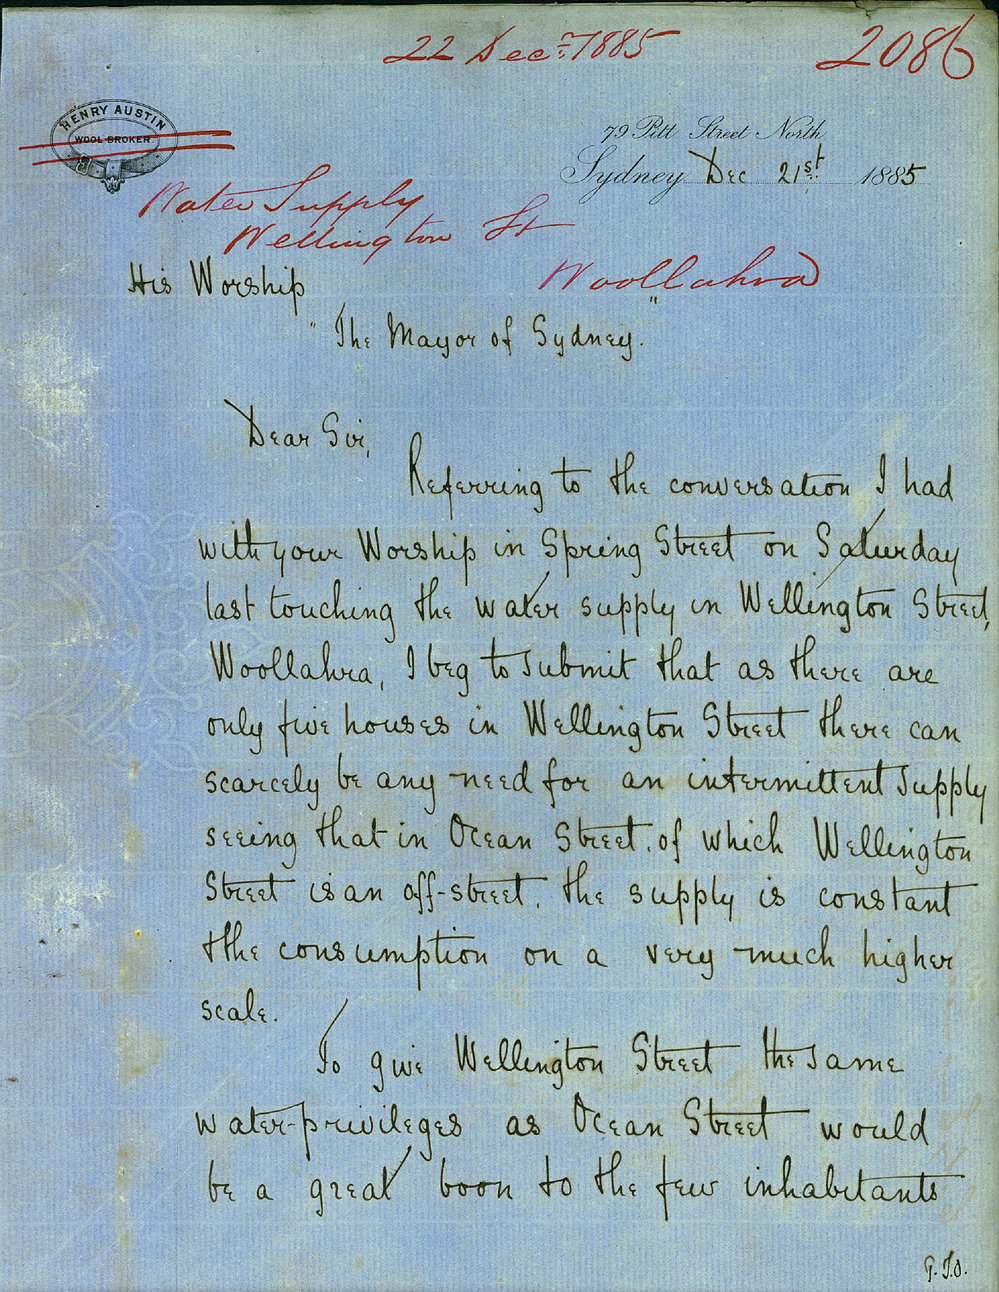 22 Decr. 1885
2086
HENRY AUSTIN
WOOL BROKER
79 Pitt Street North
Sydney Dec 21st. 1885
Water Supply
Wellington St
Woollahra
His Worship
"The Mayor of Sydney."
Dear Sir,
Referring to the conversation I had
with your Worship in Spring Street on Saturday
last touching the water supply in Wellington Street,
Woollahra, I beg to submit that as there are
only five houses in Wellington Street there can
scarcely be any need for an intermittent supply
seeing that in Ocean Street, of which Wellington
Street is an off-street, the supply is constant
& the consumption on a very much higher
scale.
To give Wellington Street the same
water-privileges as Ocean Street would
be a great boon to the few inhabitants
P.T.O.